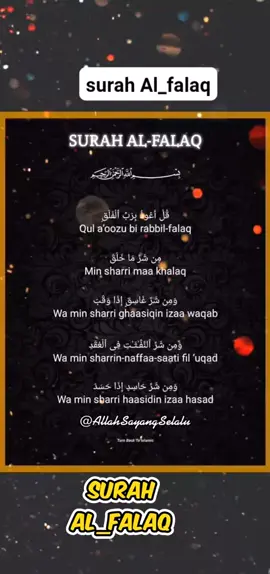 surah Al_falaq
SURAH AL-FALAQ
بِسْمِ اللَّهِ الرَّحْمَٰنِ الرَّحِيمِ
قُلْ أَعُوذُ بِرَبِّ ٱلْفَلَقِ
Qul a'oozu bi rabbil-falaq
مِن شَرِّ مَا خَلَقَ
Min sharri maa khalaq
وَمِن شَرِّ غَاسِقٍ إِذَا وَقَبَ
Wa min sharri ghaasiqin izaa waqab
وَمِن شَرِّ ٱلنَّفَّـٰثَـٰتِ فِى ٱلْعُقَدِ
Wa min sharrin-naffaa-saati fil 'uqad
وَمِن شَرِّ حَاسِدٍ إِذَا حَسَدَ
Wa min sharri haasidin izaa hasad
@AllahSayangSelalu
Turn Back To Islamic
SURAH
AL_FALAQ